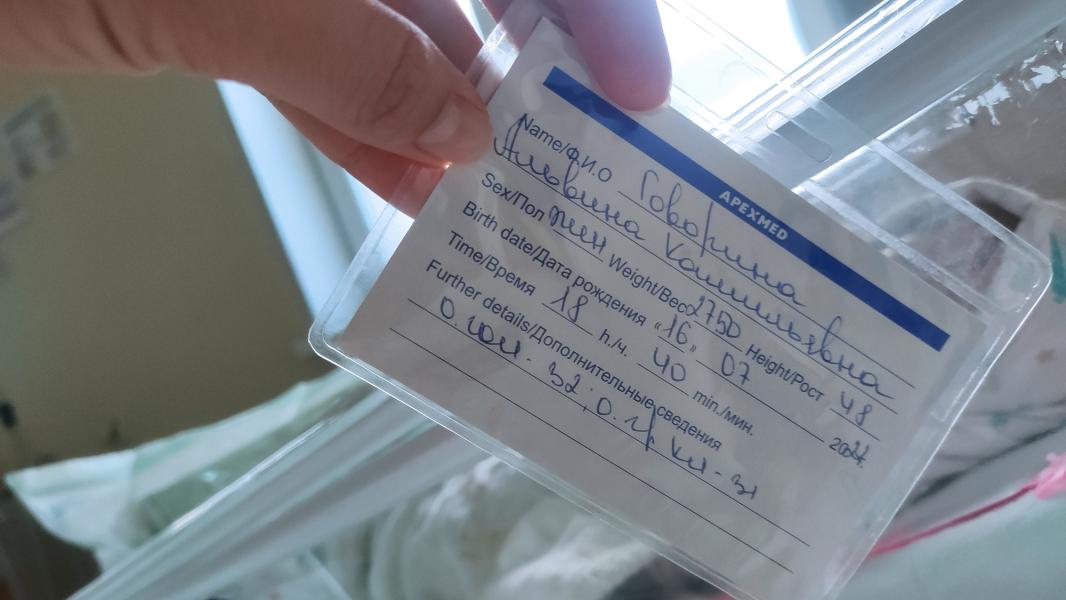 APEXMED
Name/Ф.И.О Говорина
Альвина Камильевна
Sex/Пол жен Weight/Вес 2750 Height/Рост 48
Birth date/Дата рождения «16» 07 2024г.
Time/Время 18 h./ч. 40 min./мин.
Further details/Дополнительные сведения
О. гол. - 32; О. гр. кл - 31